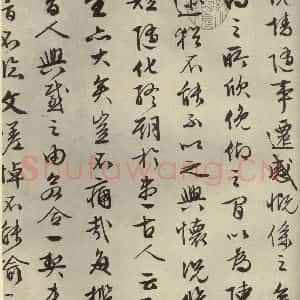 倦情隨事遷感慨係之
向之所欣俛仰之間以為陳
迹猶不能不以之興懷況脩
短隨化終期於盡古人云
生亦大矣豈不痛哉每攬
昔人興感之由若合一契未
嘗不臨文嗟悼不能喻
Shufawang.CN